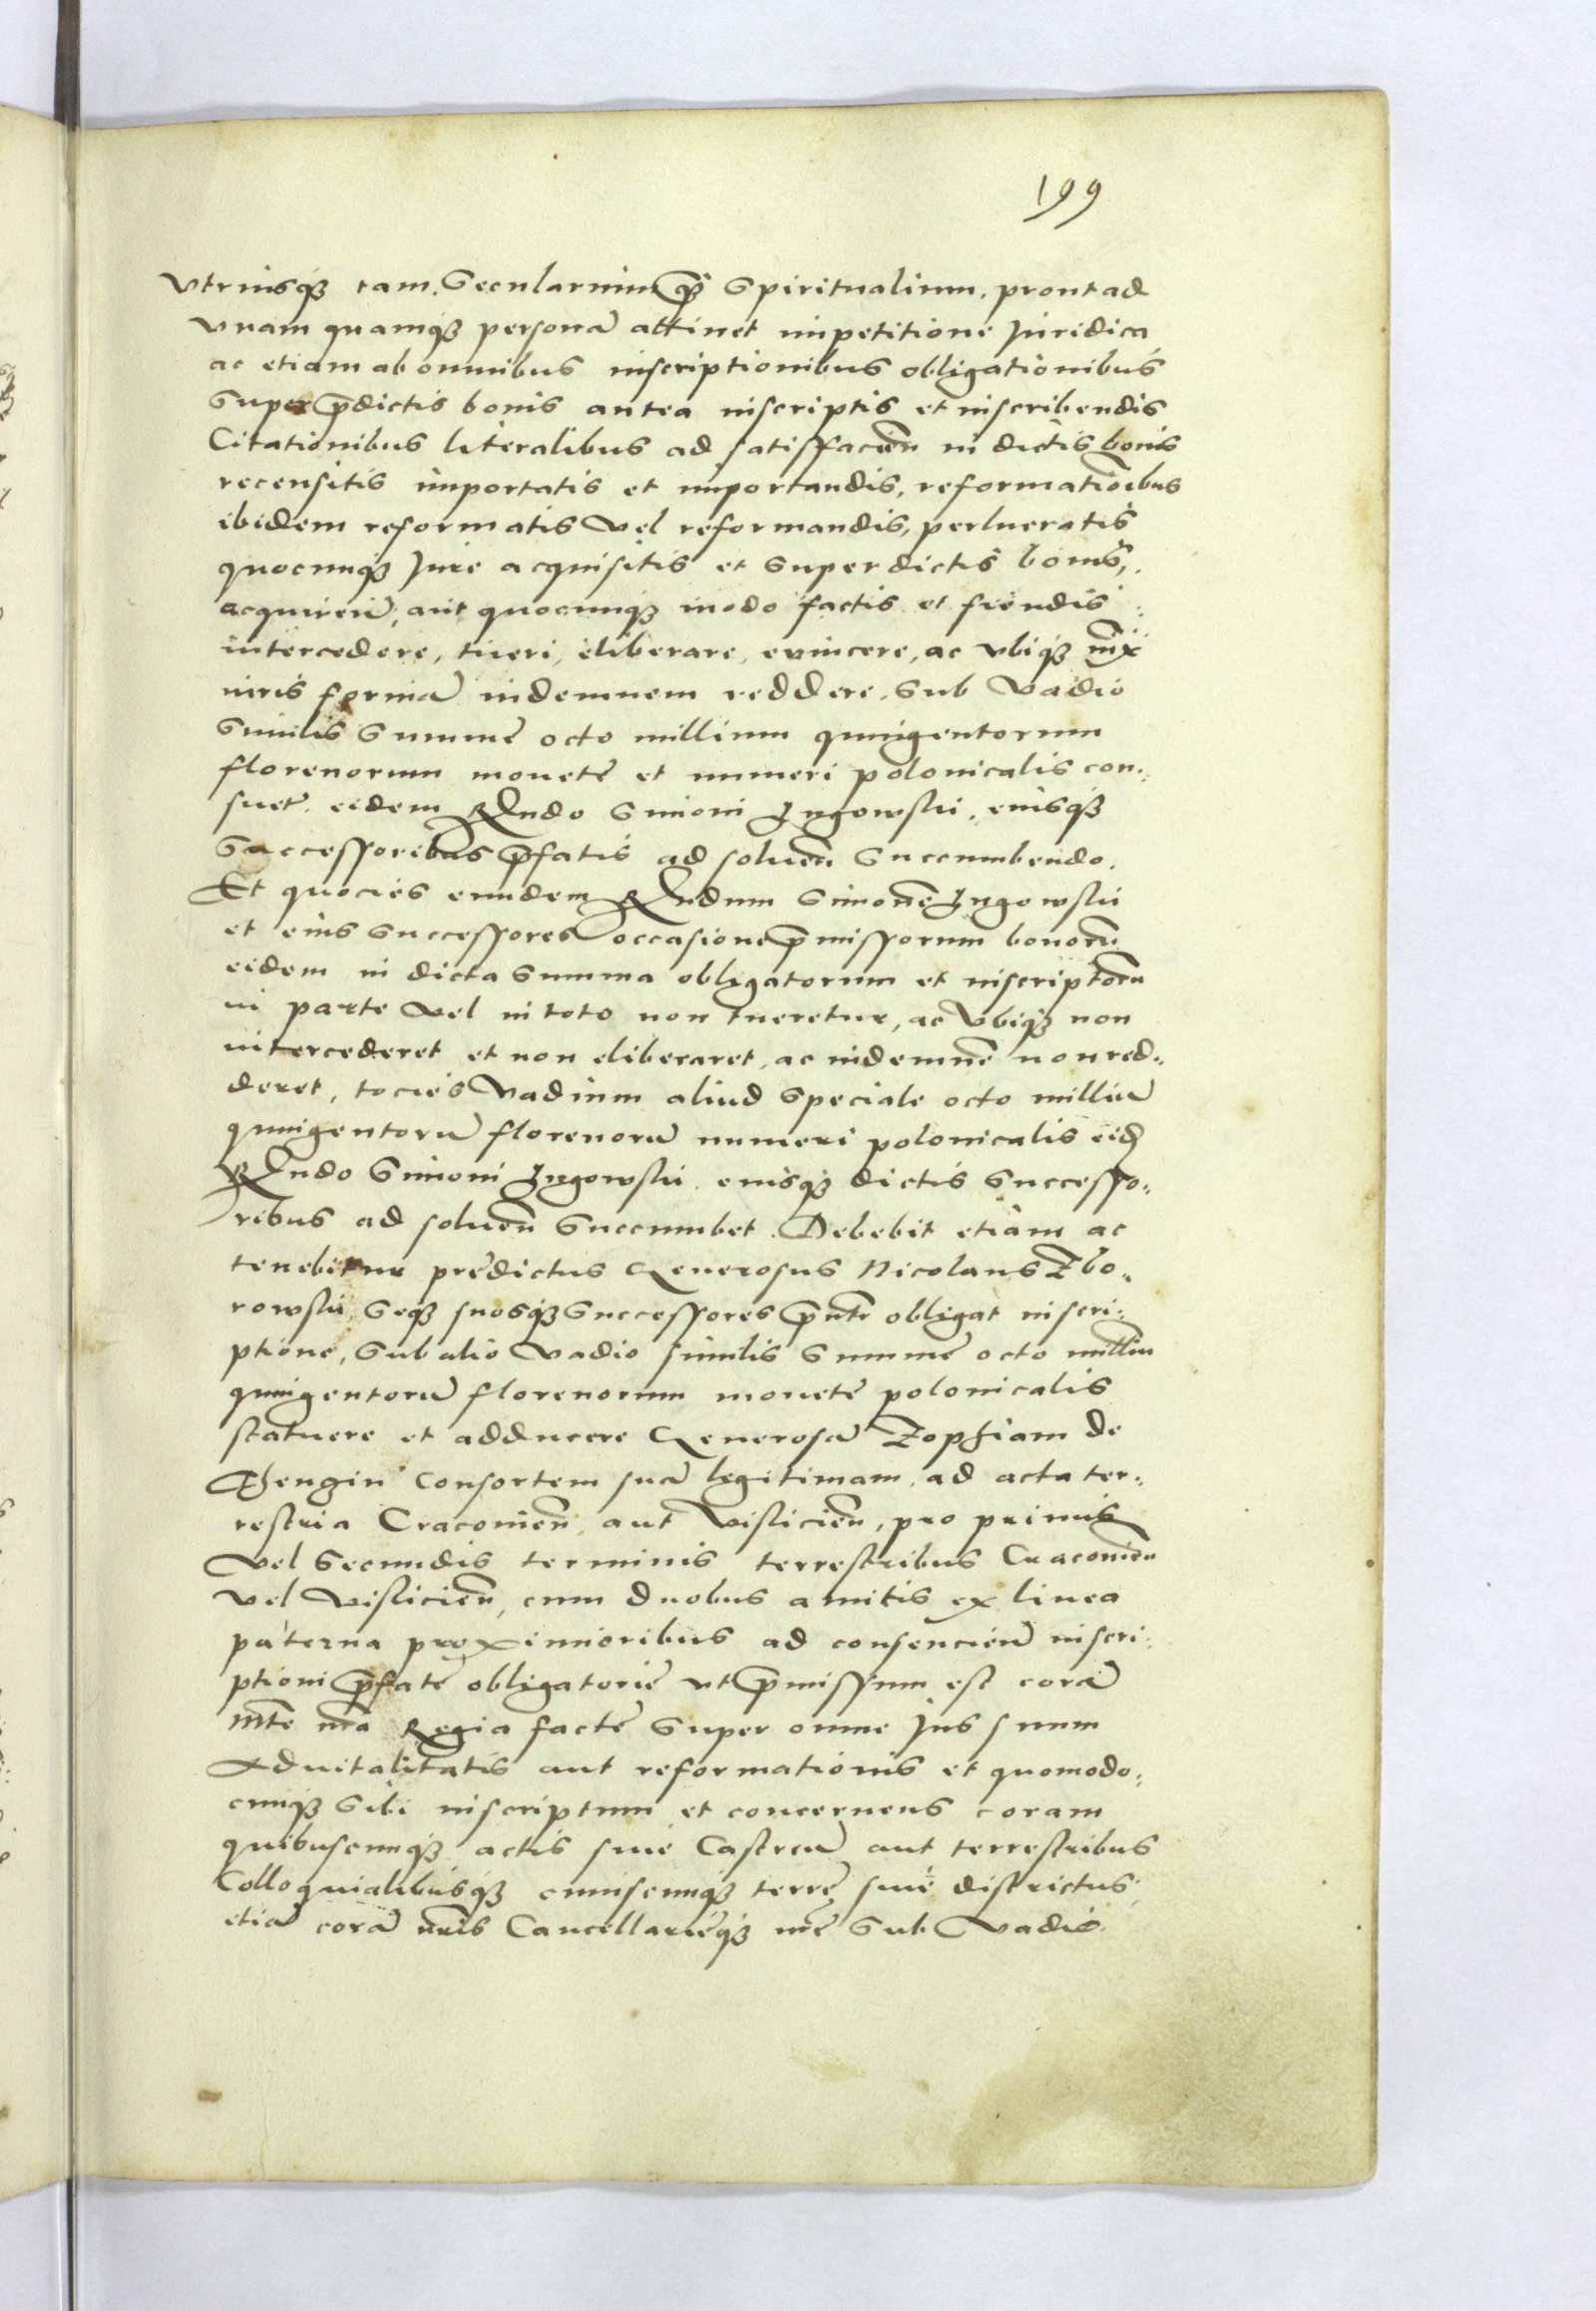 199
Vtriusqȝ tam Secularium qͣ Spiritualium, prout ad
vnam quamqȝ personā attinet impetitione Juridica
ac etiam ab omnibus inscriptionibus obligationibus
Super p̄dictis bonis antea inscriptis et inscribendis
Citationibus literalibus ad satisfacień in dictis bonis
recensitis importatis et importandis, reformationibus
ibidem reformatis vel reformandis, perlucratis
quocunqȝ Jure acquisitis et super dictis bonis,
acquireń, aut quocunqȝ modo factis et fiendis
intercedere, tueri, eliberare, euincere, ac vbiqȝ
iuris formā indemnem reddere, sub vadio
Similis Summe octo millium quingentorum
florenorum monete et numeri polonicalis con:
suet eidem Rndo Simoni Jugowski, eiusqȝ
Successoribus p̄fatis ad soluen̄ Succumbendo.
Et quocies eundem Rndum Simonē Jugowski
et eius Successores occasione p̄missorum bonorū
eidem in dicta Summa obligatorum et inscriptorū
in parte vel in toto non tueretur, ac vbiqȝ non
intercederet et non eliberaret, ac indemnē non red:
deret, tocies Vadium aliud Speciale octo milliū
quingentorū florenorū numeri polonicalis eid
Rndo Simoni Jugowski eiusqȝ dictis Successo:
ribus ad soluen̄ Succumbet. Debebit etiam ac
tenebitur predictus Generosus Nicolaus Zbo:
rowski, Seqȝ suosqȝ Successores p̄nti obligat inscri:
ptione, Sub alio Vadio similis Summe octo milliū
quingentorū florenorum monete polonicalis
statuere et adducere Generosā Zophiam de
consortem suā legitimam, ad acta ter:
restria Cracouień aut Vislicień, pro primis
Vel Secundis terminis terrestribus Cracouień
vel Vislicień, cum duobus amitis ex linea
paterna proximioribus ad consencień inscri:
ptioni p̄fate obligatorie vt p̄missum est corā
Mte nrā Regia facte Super omne Jus suum
Aduitalitatis aut reformationis et quomodo:
cunqȝ Sibi inscriptum et concernens coram
quibuscunqȝ actis siue Castreń aut terrestribus
Colloquialibusqȝ cuiuscunqȝ terre siue districtus,
etiā corā nris Cancellarieqȝ nre Sub Vadio